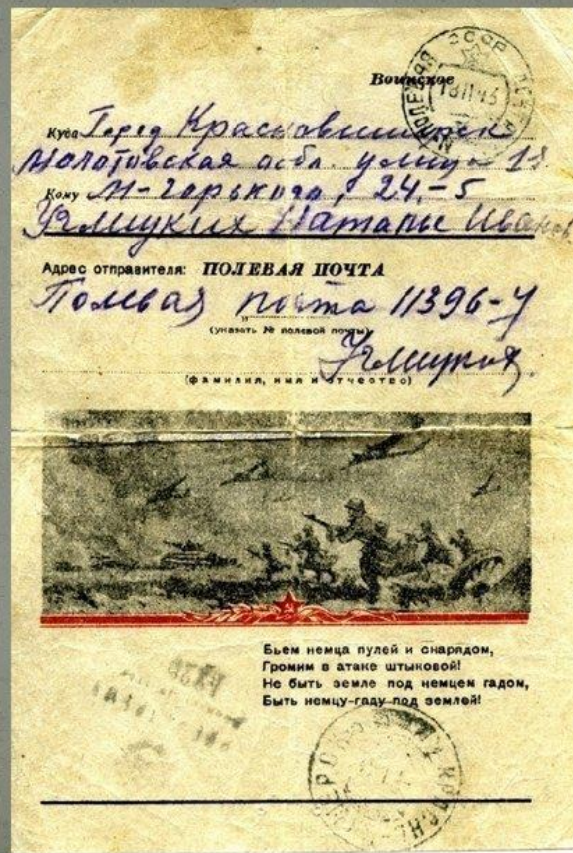 Воинское
СССР
18 11 43
Куда Город Красновишерск
Молотовская обл. улица 1-я
Кому М-Горького, 24-5
Углицких Наталье Иванов.
Адрес отправителя: ПОЛЕВАЯ ПОЧТА
Полевая почта 11396-У
(указать № полевой почты)
Углицких
(фамилия, имя и отчество)
Бьем немца пулей и снарядом,
Громим в атаке штыковой!
Не быть земле под немцем гадом,
Быть немцу-гаду под землей!